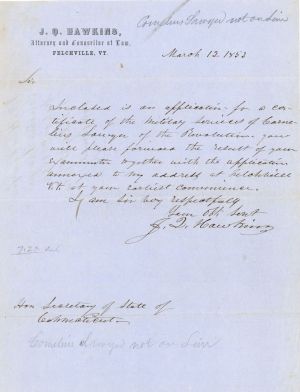 J. Q. HAWKINS,
Attorney and Counsellor at Law,
FELCHVILLE, VT.
Cornelius Sawyer not on Line
March 12. 1853
Sir
Inclosed is an application for a cer-
tificate of the Military Services of Corne-
lius Sawyer of the Revolution. you
will please forward the result of your
examination together with the application
annexed to my address at Felchville
Vt. at your earliest convenience.
I am Sir very respectfully
Your Obt Servt
J. Q. Hawkins
Hon Secretary of State of
Connecticut
Cornelius Sawyer not on Line